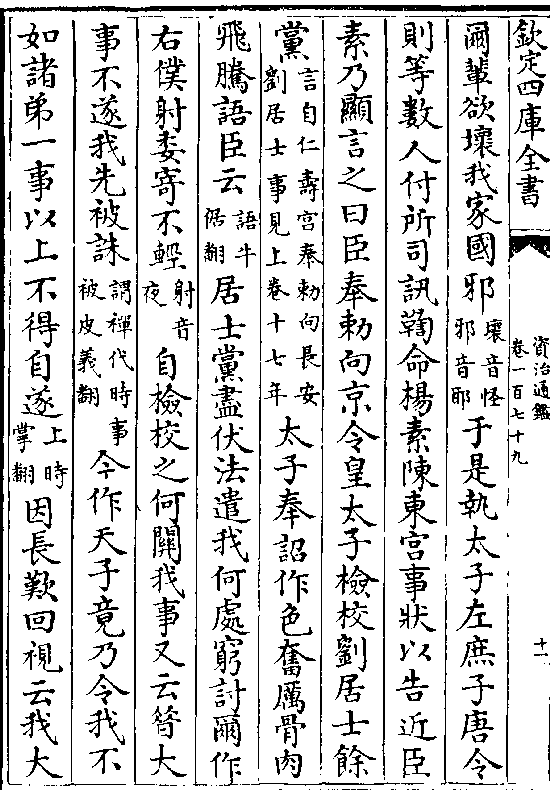 欽定四庫全書
資治通鑑
卷一百七十九
十一
爾輩欲壞我家國邪壞音怪邪音耶于是執太子左庶子唐令
則等數人付所司訊鞫命楊素陳東宫事狀以告近臣
素乃顯言之曰臣奉勅向京令皇太子檢校劉居士餘
黨言自仁壽宫奉勅向長安劉居士事見上卷十七年太子奉詔作色奮厲骨肉
飛騰語臣云語牛倨翻居士黨盡伏法遣我何處窮討爾作
右僕射委寄不輕射音夜自檢校之何關我事又云昔大
事不遂我先被誅謂禪代時事被皮義翻今作天子竟乃令我不
如諸弟一事以上不得自遂上時掌翻因長歎回視云我大